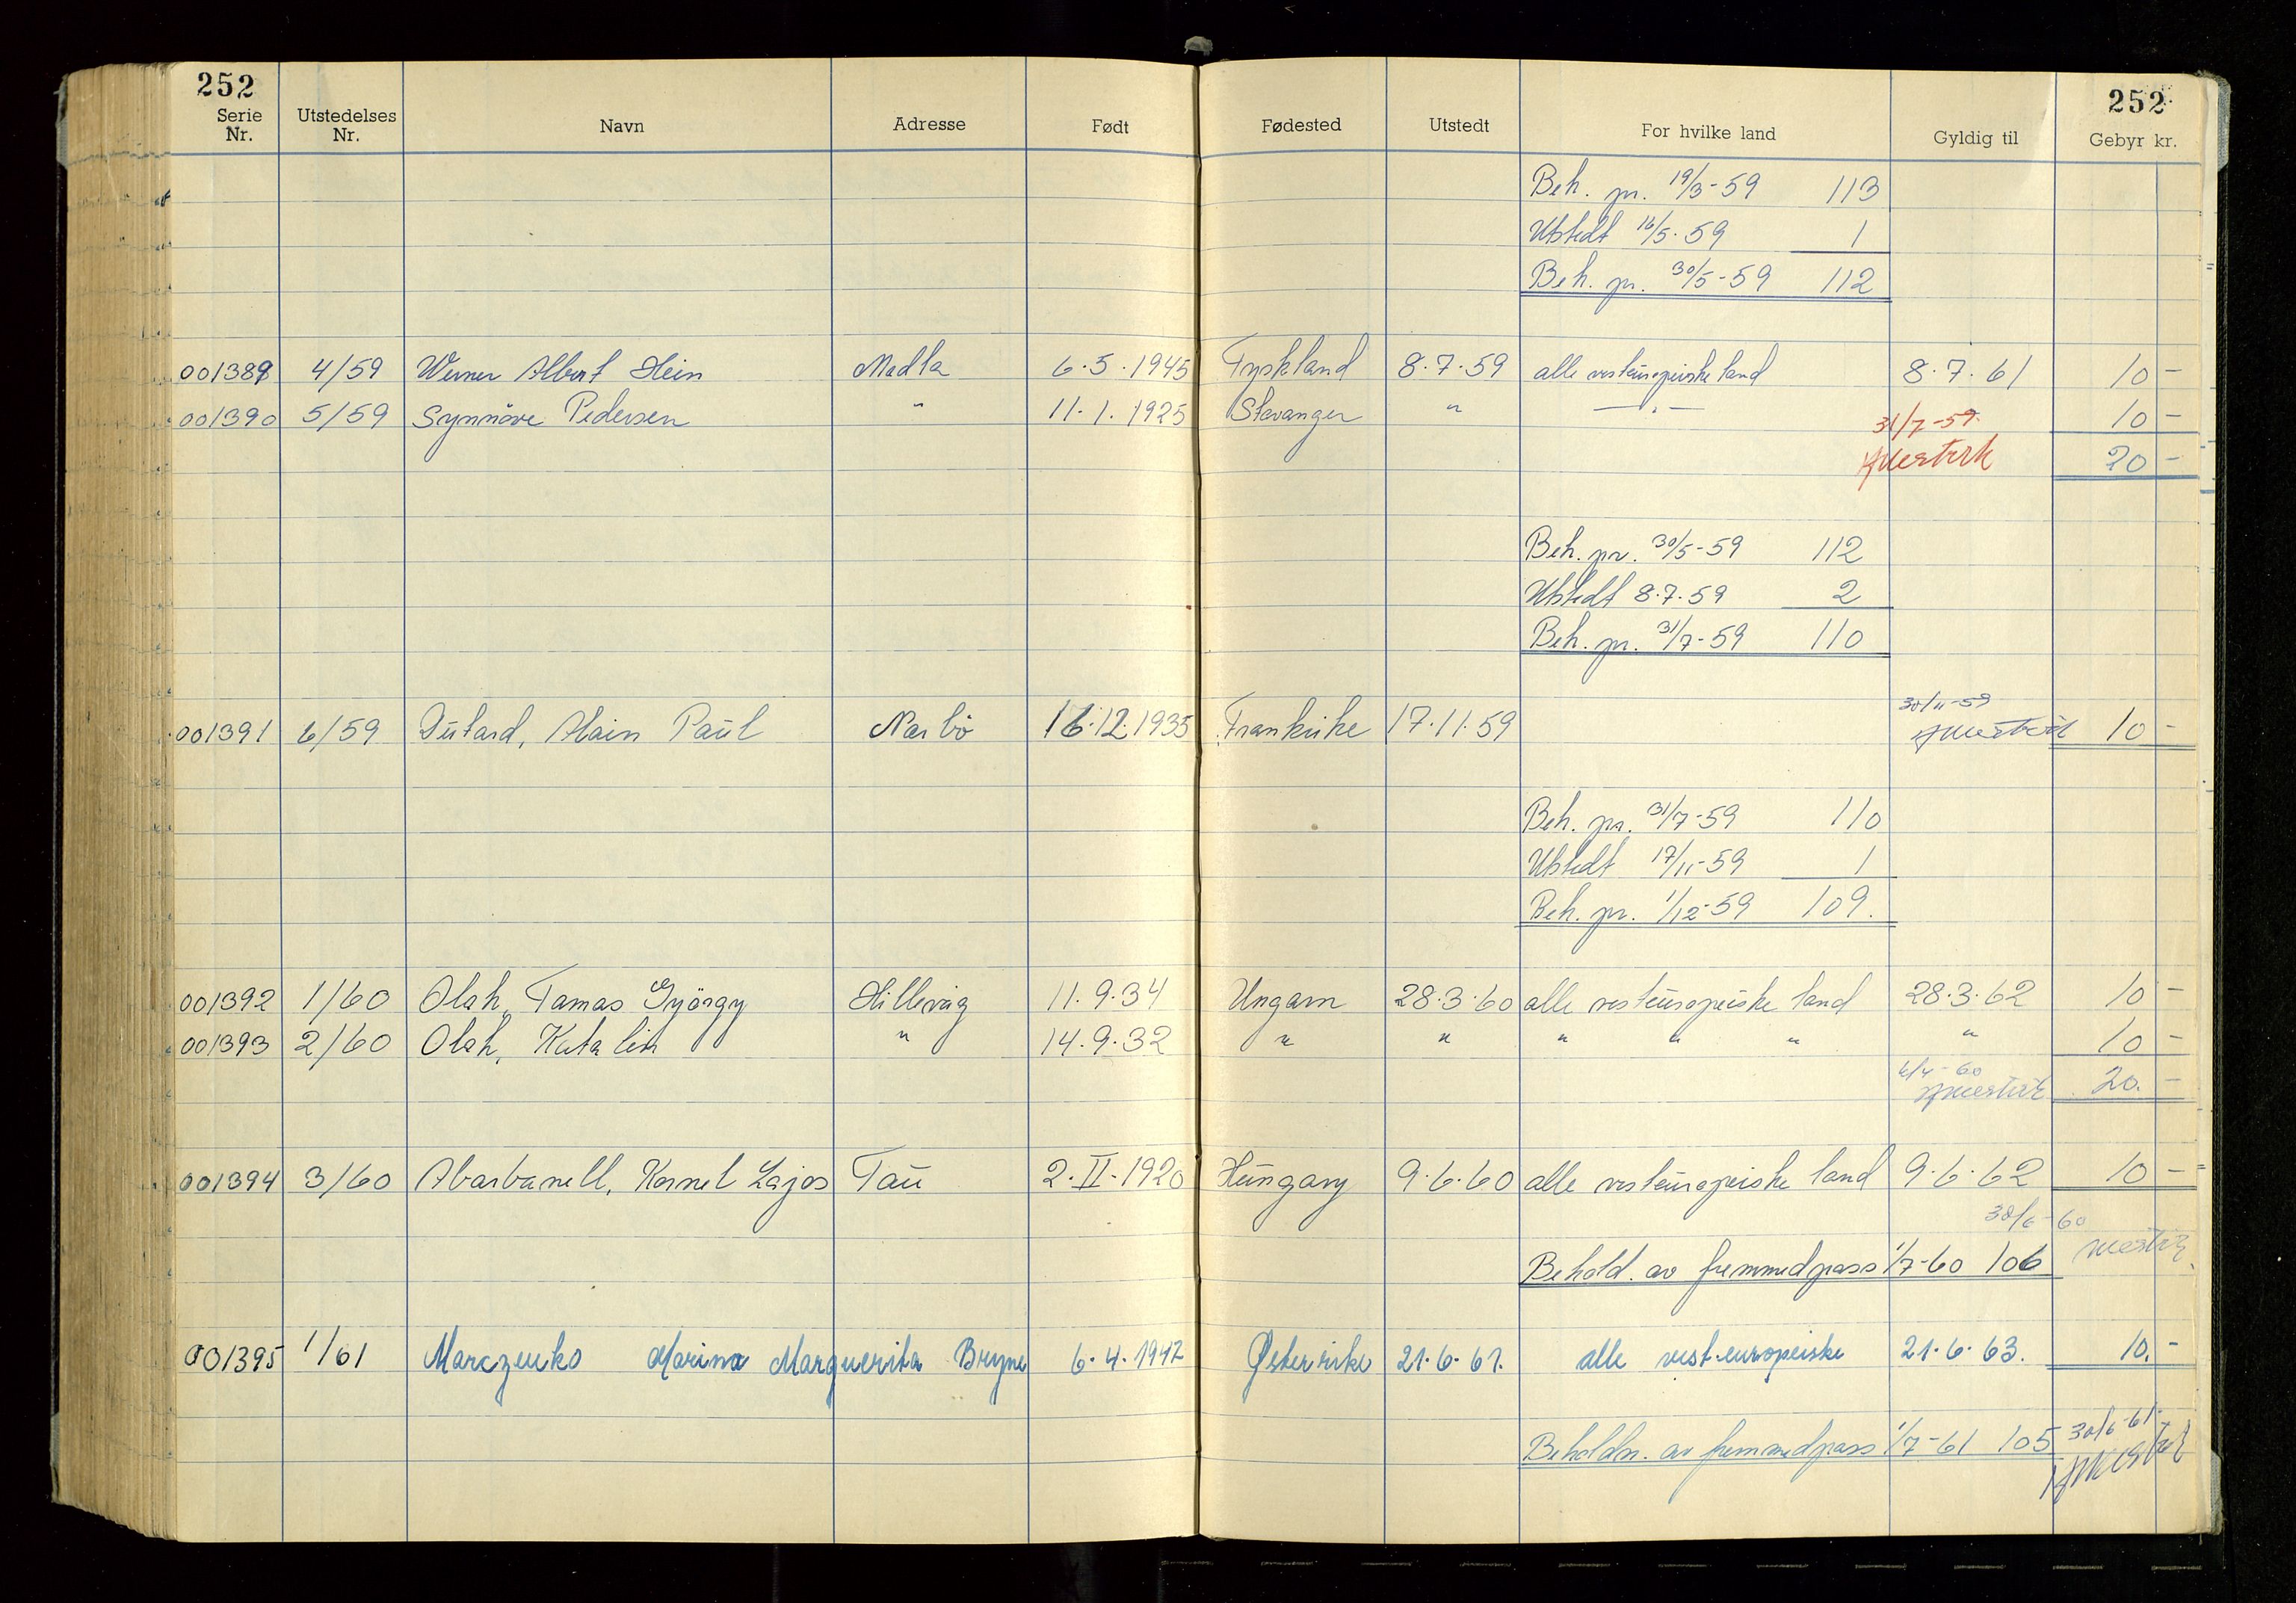 252 252
Serie Nr. Utstedelses Nr. Navn Adresse Født Fødested Utstedt For hvilke land Gyldig til Gebyr kr.
Beh. pr. 19/3-59 113
Utstedt 16/5-59 1
Beh. pr. 30/5-59 112
001389 4/59 Werner Albert Hein Madla 6.5.1945 Tyskland 8.7.59 alle vesteuropeiske land 8.7.61 10 -
001390 5/59 Synnöve Pedersen " 11.1.1925 Stavanger " —"— 10 -
31/7-59.
20 -
Beh. pr. 30/5-59 112
Utstedt 8.7.59 2
Beh. pr. 31/7-59 110
30/11-59
001391 6/59 Dutard, Alain Paul Narbö 16.12.1935 Frankrike 17.11.59 10 -
Beh. pr. 31/7-59 110
Utstedt 17/11-59 1
Beh. pr. 1/12-59 109.
001392 1/60 Olah, Tamas György Hillevåg 11.9.34 Ungarn 28.3.60 alle vesteuropeiske land 28.3.62 10 -
001393 2/60 Olah, Katalin " 14.9.32 " " " " " " 10 -
20. -
001394 3/60 Abarbanell, Kornel Lajos Tau 2.II.1920 Hungary 9.6.60 alle vesteuropeiske land 9.6.62 10 -
30/6-60
Behold. av fremmedpass 1/7-60 106
001395 1/61 Marczenko Marina Marguerita Bryne 6.4.1947 Østerrike 21.6.61. alle vest-europeiske 21.6.63. 10. -
Beholdn. av fremmedpass 1/7-61 105 30/6-61.